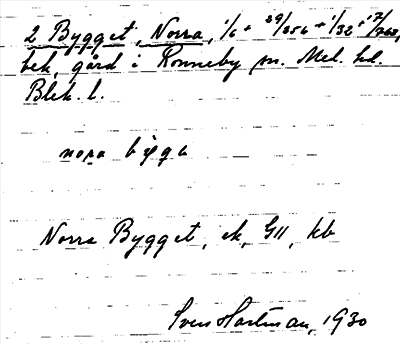 2 Bygget, Norra, 1/6 + 29/256 + 1/32 + 17/768,
bek, gård i Ronneby sn. Mel. hd.
Blek. l.
nora bÿga
Norra Bygget, ek, G11, kb
Sven Hartman, 1930